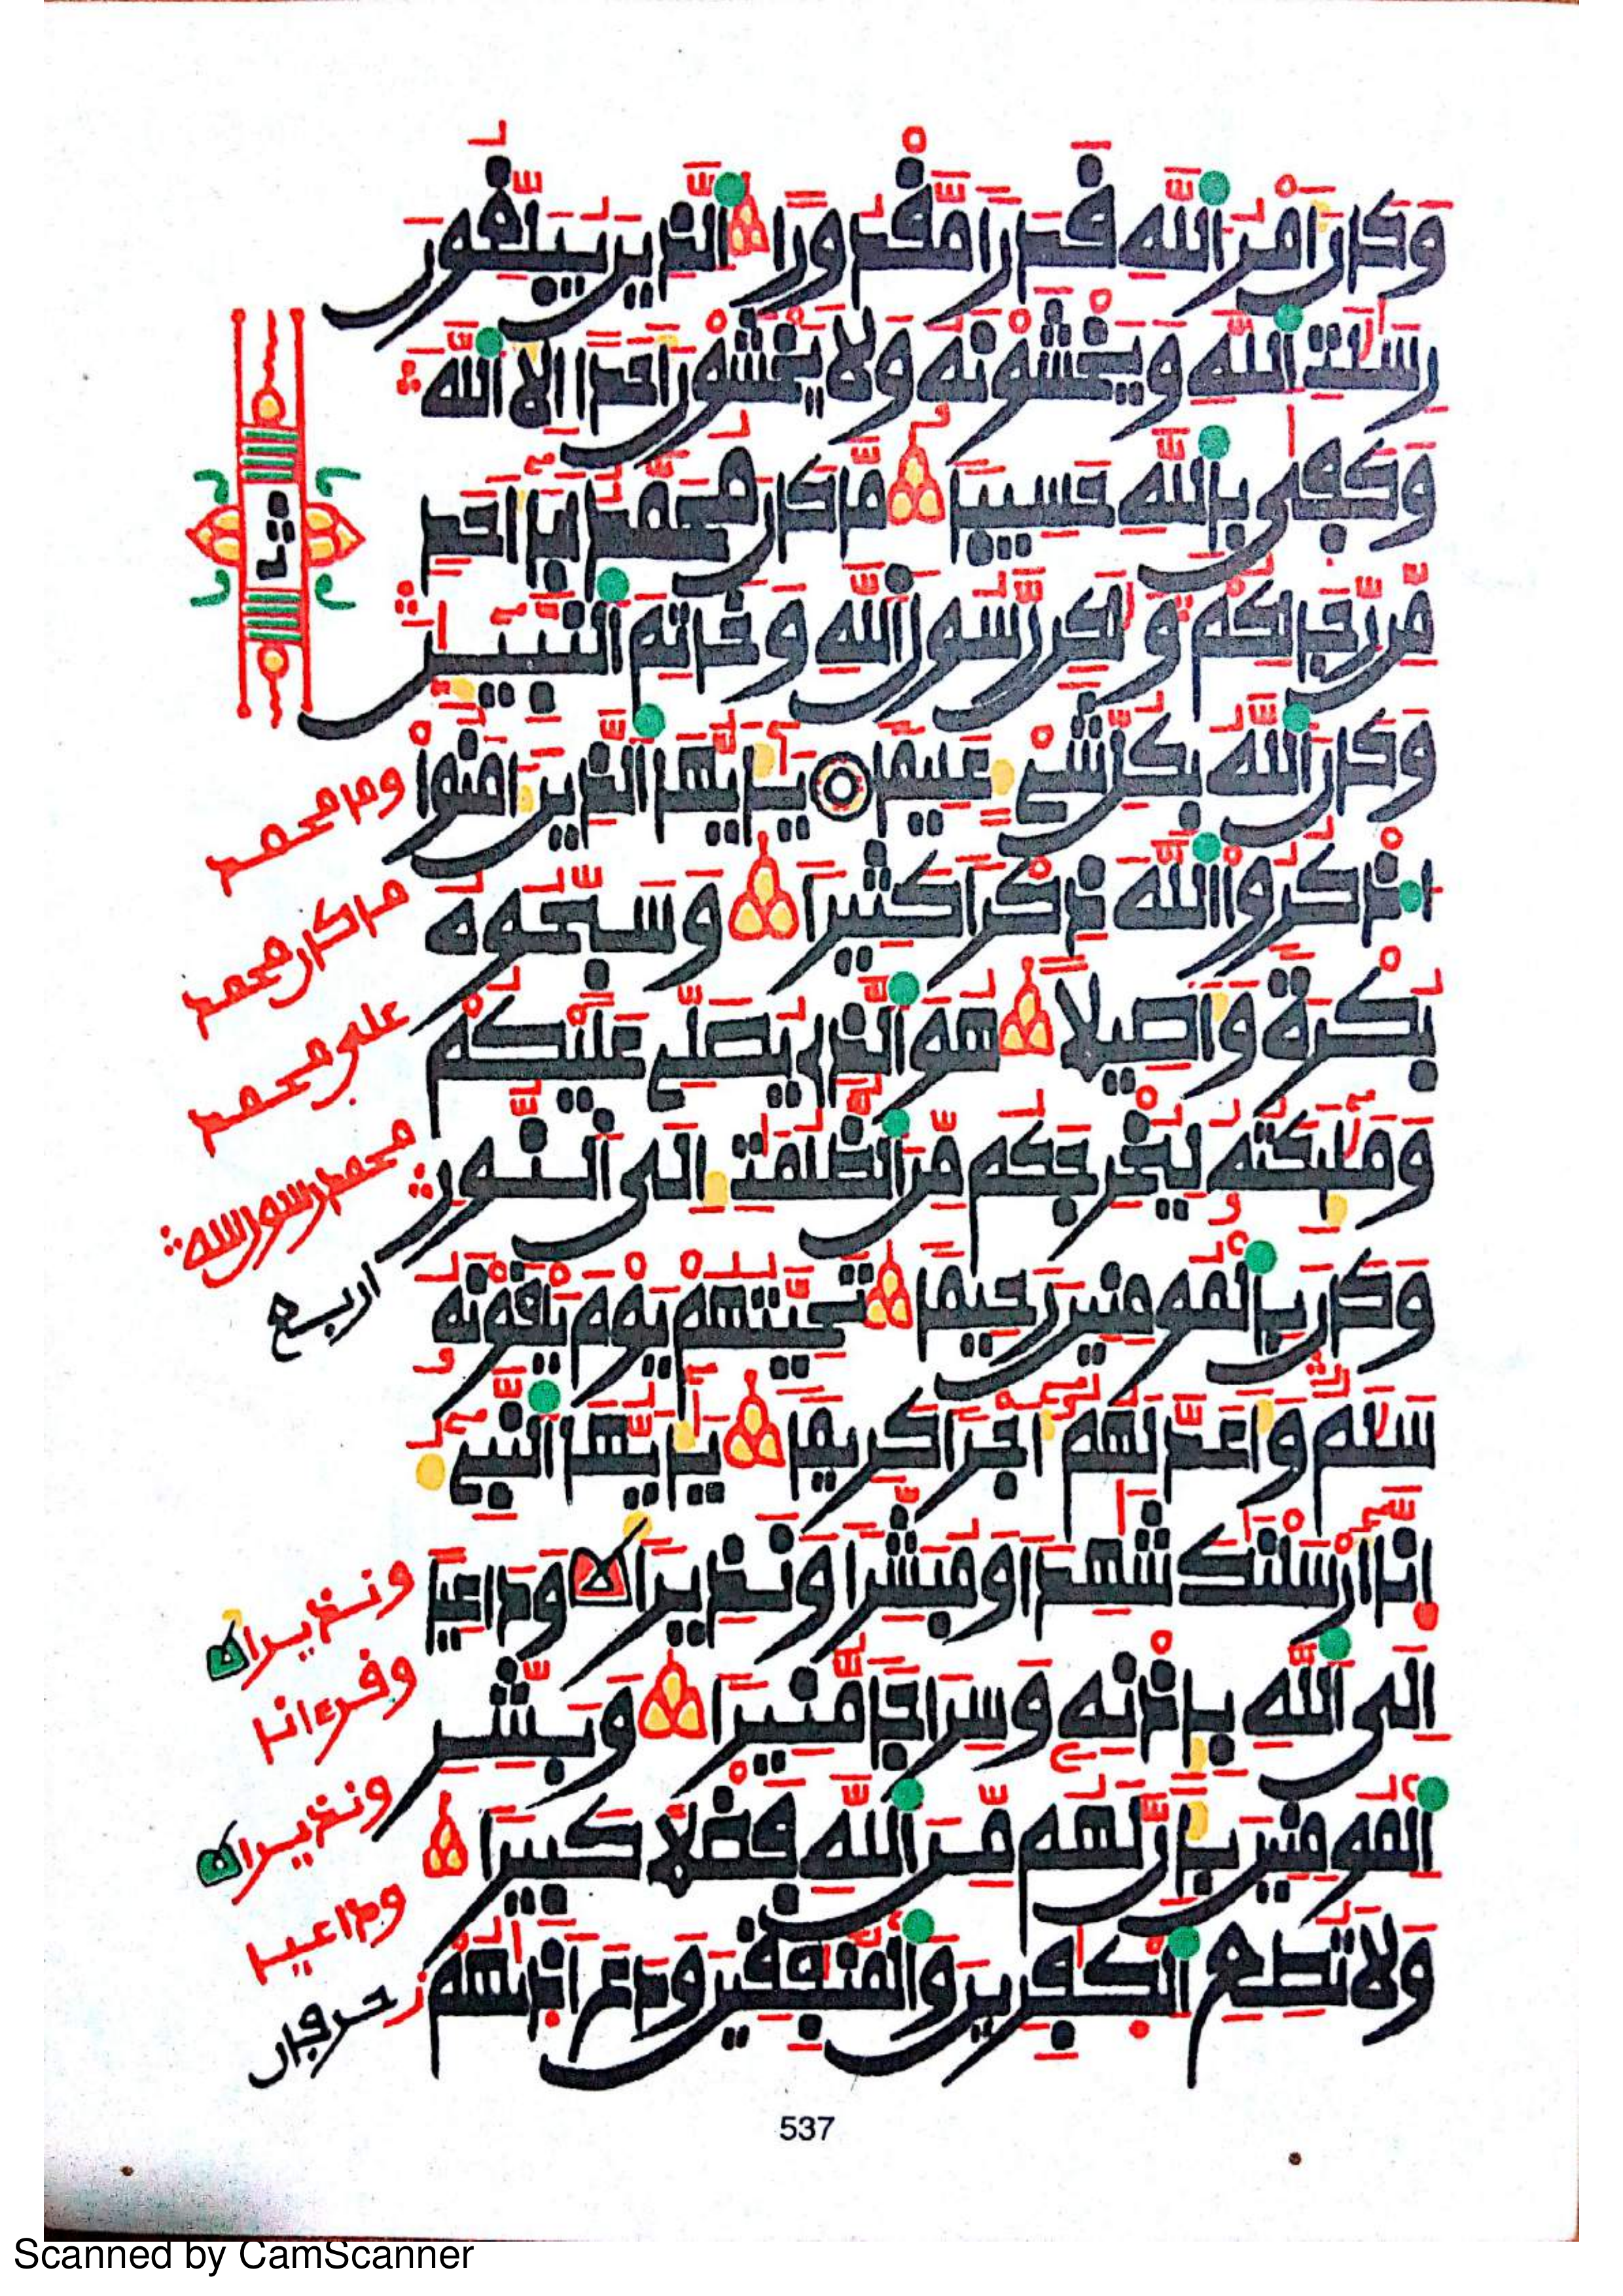 وَكَانَ أَمْرُ اَللَّهِ قَدَرًا مَّقْدُورًا اَلَّذِينَ يُبَلِّغُونَ
رِسَٰلَٰتِ اِ۬للَّهِ وَيَخْشَوْنَهُۥ وَلَا يَخْشَوْنَ أَحَدًا اِلَّا اَ۬للَّهَ
وَكَفَىٰ بِاللَّهِ حَسِيبًا مَّا كَانَ مُحَمَّدٌ اَبَآ أَحَدٍ
مِّن رِّجَالِكُمْ وَلَٰكِن رَّسُولَ اَ۬للَّهِ وَخَاتِمَ اَ۬لنَّبِيٓـِٕينَ
وَكَانَ اَ۬للَّهُ بِكُلِّ شَيْءٍ عَلِيمًا يَٰٓأَيُّهَا اَ۬لَّذِينَ ءَامَنُوا
اُ۟ذْكُرُوا اُ۬للَّهَ ذِكْرًا كَثِيرًا وَسَبِّحُوهُ
بُكْرَةً وَأَصِيلًا هُوَ اَ۬لَّذِي يُصَلِّي عَلَيْكُمْ
وَمَلَٰٓئِكَتُهُۥ لِيُخْرِجَكُم مِّنَ اَ۬لظُّلُمَٰتِ إِلَى اَ۬لنُّورِ
وَكَانَ بِالْمُومِنِينَ رَحِيمًا تَحِيَّتُهُمْ يَوْمَ يَلْقَوْنَهُۥ
سَلَٰمٌ وَأَعَدَّ لَهُمُۥٓ أَجْرًا كَرِيمًا يَٰٓأَيُّهَا اَ۬لنَّبِيٓءُ
اِنَّآ أَرْسَلْنَٰكَ شَٰهِدًا وَمُبَشِّرًا وَنَذِيرًا وَدَاعِيًا
اِلَى اَ۬للَّهِ بِإِذْنِهِۦ وَسِرَاجًا مُّنِيرًا وَبَشِّرِ
اِ۬لْمُومِنِينَ بِأَنَّ لَهُم مِّنَ اَ۬للَّهِ فَضْلًا كَبِيرًا
وَلَا تُطِعِ اِ۬لْكَٰفِرِينَ وَالْمُنَٰفِقِينَ وَدَعَ اَذَىٰهُمْ
ثمن
وما محمد
ما كان محمد
على محمد
محمد رسول الله
اربع
ونذيرا
وقرءانا
ونذيرا
وداعيا
حرفان
537
Scanned by CamScanner